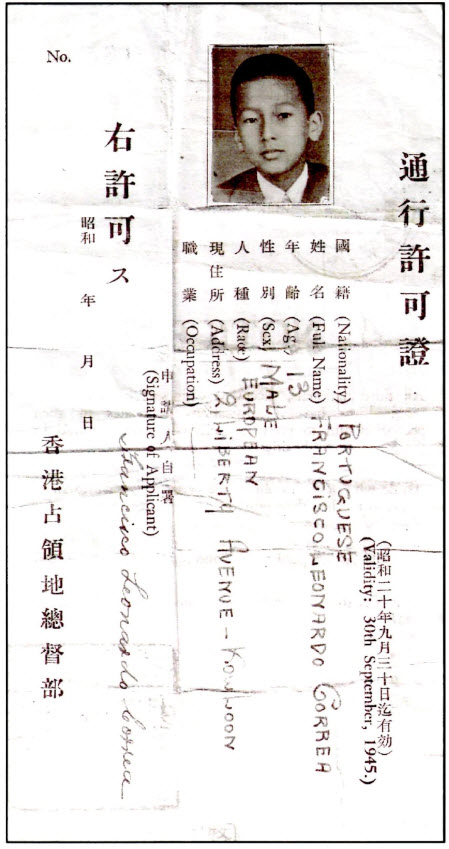 通行許可證
(昭和二十年九月三十日迄有効)
(Validity: 30th September, 1945.)
國籍 (Nationality) PORTUGUESE
姓名 (Full Name) FRANCISCO LEONARDO CORREA
年齡 (Age) 13
性別 (Sex) MALE
人種 (Race) EUROPEAN
現住所 (Address) 2, LIBERTY AVENUE - KOWLOON
職業 (Occupation)
申請人自署
(Signature of Applicant)
Francisco Leonardo Correa
右許可ス
昭和 年 月 日
香港占領地總督部
No.